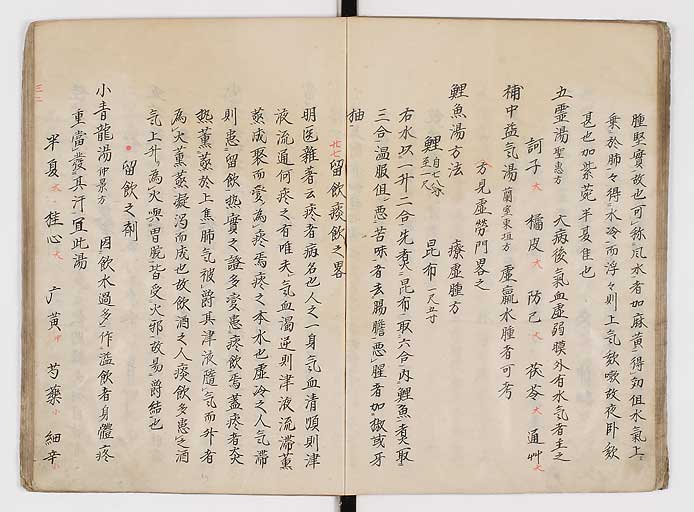 腫堅實故也可弥風水者加麻黄得効但水氣上
乗於肺々得水冷而浮々則上气欬嗽故夜卧欬
甚也加紫菀半夏佳也
五霊湯 聖恵方 大病後氣血虚弱膜外有水氣者主之
訶子大 橘皮大 防己大 茯苓大 通艸大
補中益气湯 蘭室東垣方 虚羸水腫者可考
方見虚勞門畧之
鯉魚湯方法 療虚腫方
鯉 自七八分至一尺 昆布 一尺五寸
右水以一升二合先煮昆布取六合内鯉魚煮取
三合温服但悪苦味者去腸膽悪腥者加椒或牙
抽
廿七 留飲痰飲之畧
明医雜著云痰者病名也人之一身气血清順則津
液流通何痰之有唯夫气血濁逆則津液流滞薫
蒸成聚而変為痰焉痰之本水也虚冷之人气滞
則患留飲熱實之證多変患痰飲焉蓋痰者炎
熱薫蒸於上焦肺气被爵其津液隨气而升者
為火薫蒸凝濁而成也故飲酒之人痰飲多患之酒
气上升為火肺胃脘皆受火邪故易爵結也
留飲之剤
小青龍湯 仲景方 因飲水過多作溢飲者身體疼
重當發其汗宜此湯
半夏大 桂心大 广黄中 芍藥小 細辛小
三二